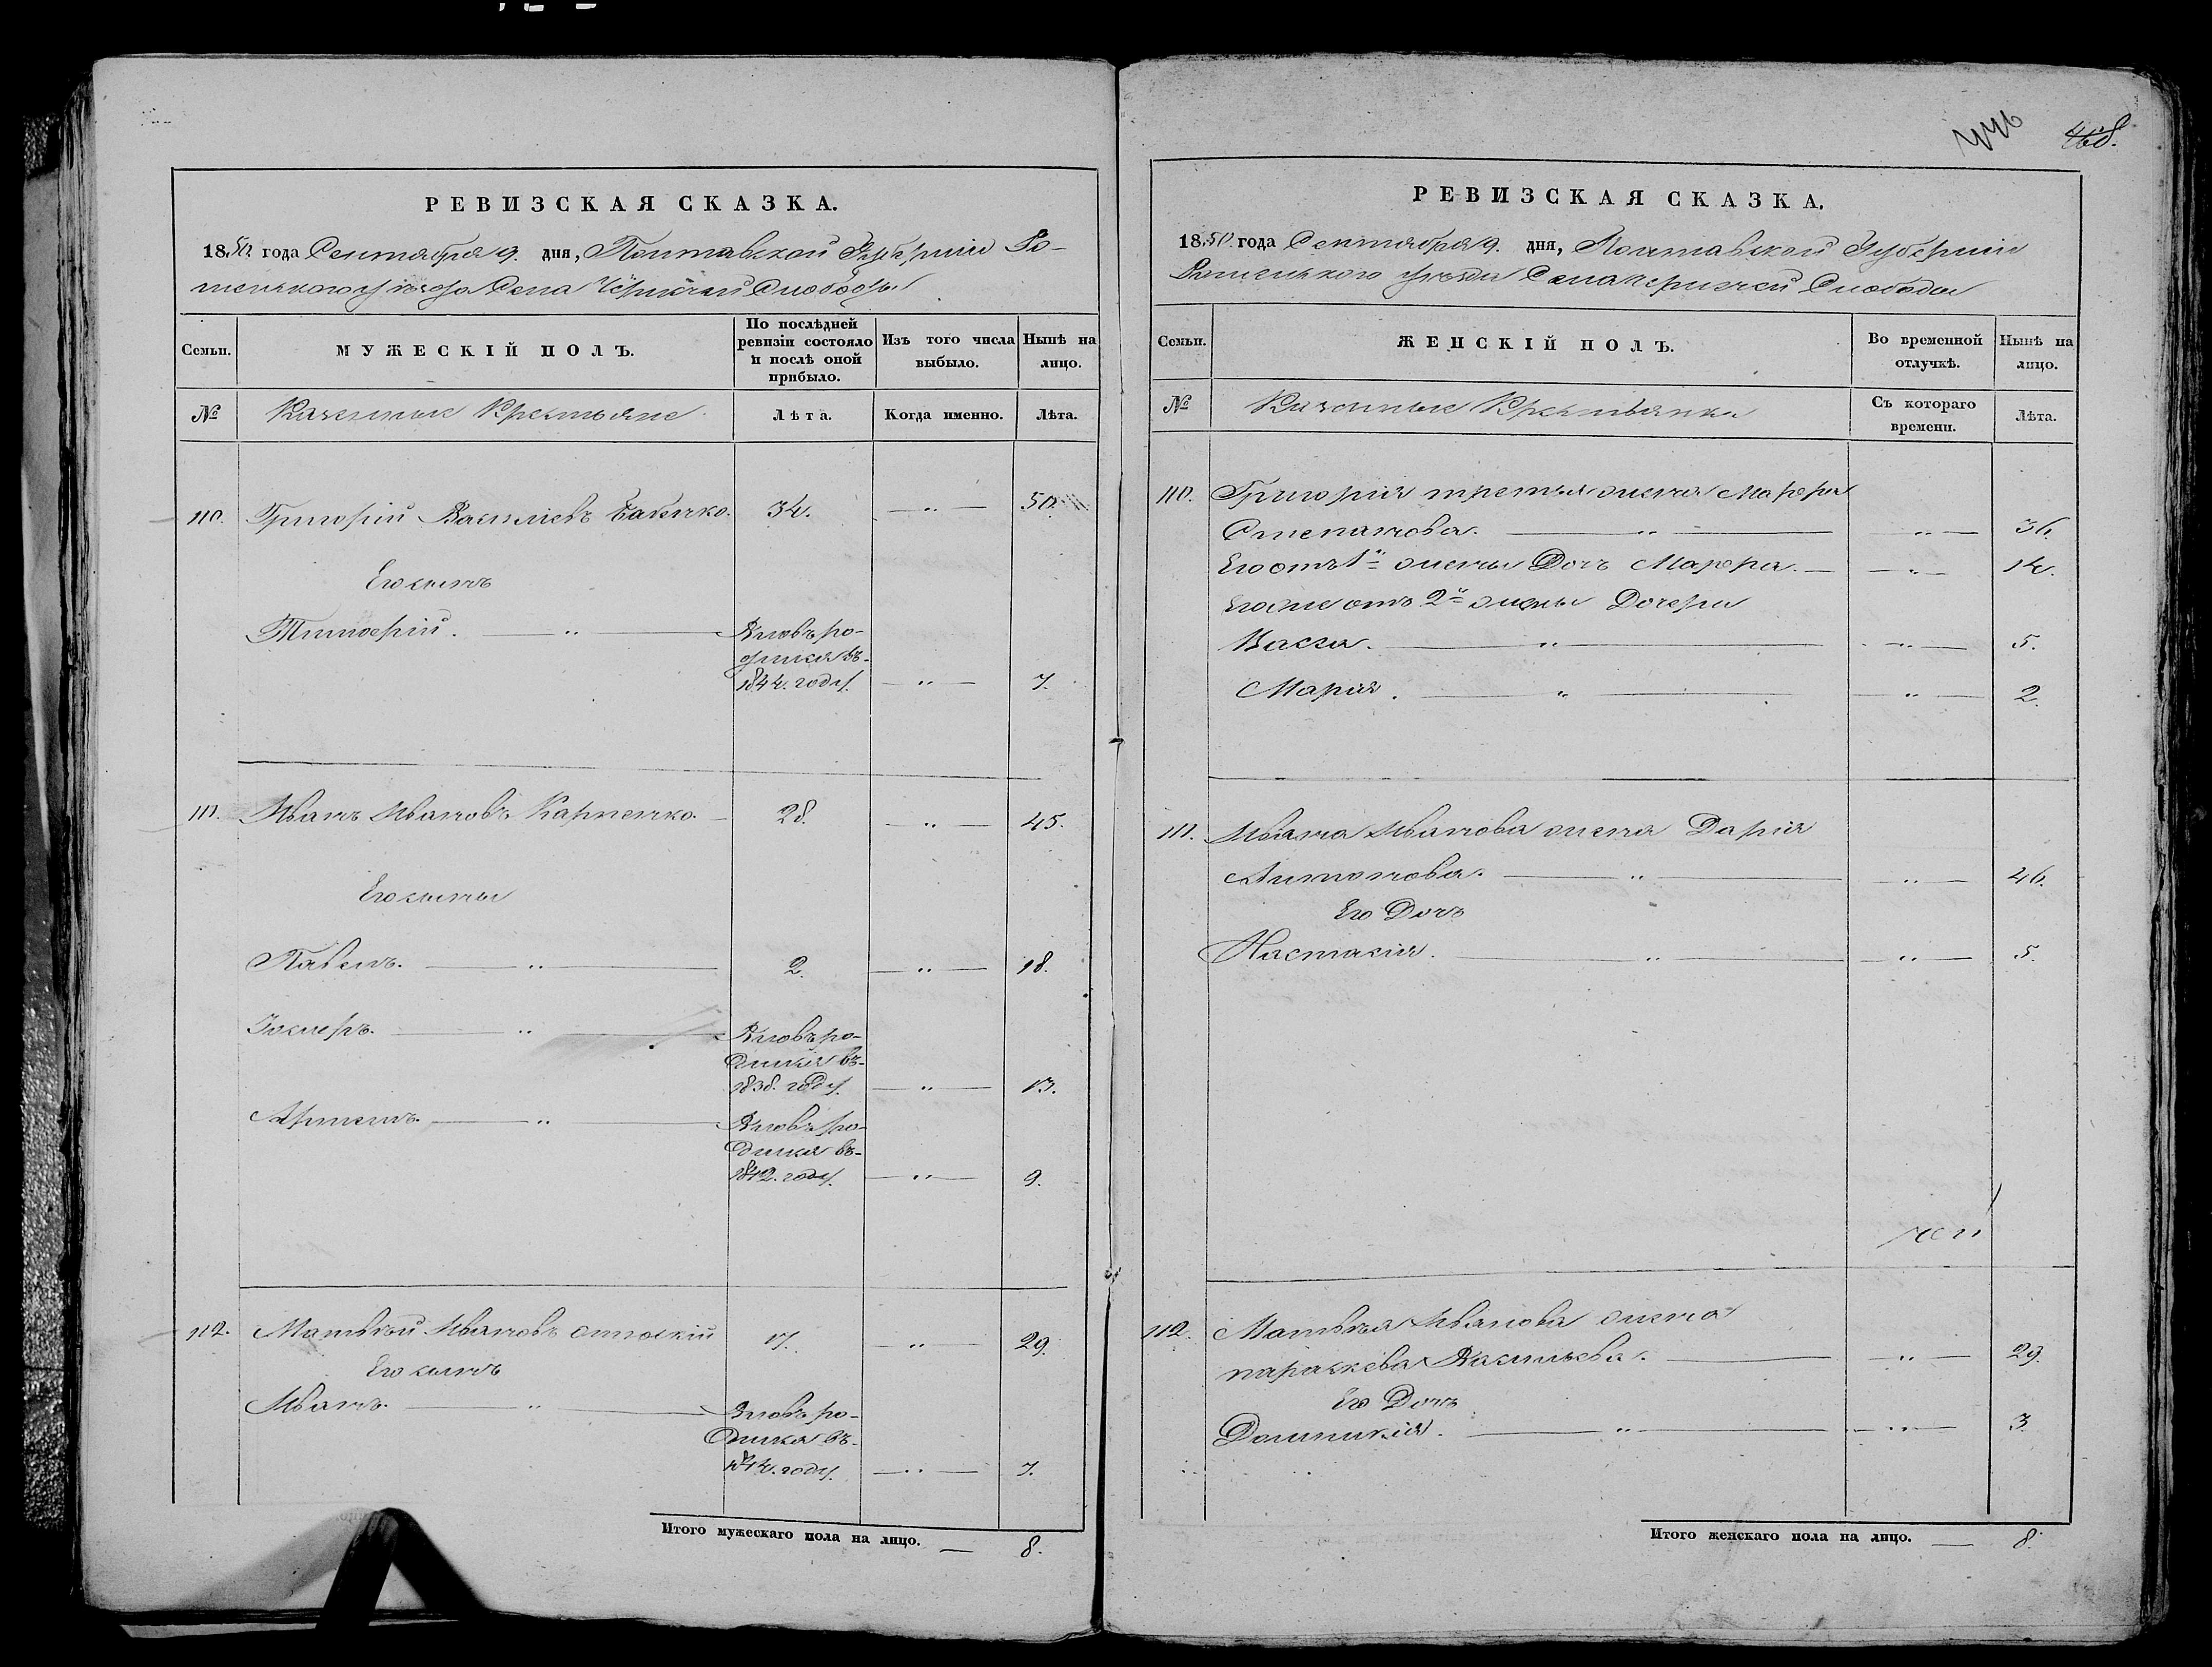 РЕВИЗСКАЯ СКАЗКА.
1850. года Сентября 9. дня, Полтавской Губернии Ро-
менского уѣзда Села Чернечей Слободы
Семьи.
МУЖЕСКІЙ ПОЛЪ.
По послѣдней ревизіи состояло и послѣ оной прибыло.
Изъ того числа выбыло.
Нынѣ на лицо.
№
Казенные Крестьяне
Лѣта.
Когда именно.
Лѣта.
110. Григорій Васильевъ Бабенко. 34. — „ — 50.
Его сынъ
Тимофей. — „ — Вновь ро-
дился въ-
1844. году. — „ — 7.
111. Иванъ Ивановъ Карпенко. — 28. — „ — 45.
Его сыны
Павелъ. — „ — 2. — „ — 18.
Іосифъ. — „ — Вновь ро-
дился въ-
1838. году. — „ — 13.
Артемъ. — „ — Вновь ро-
дился въ-
1842. году. — „ — 9.
112. Матвѣй Ивановъ 17. — „ — 29.
Его сынъ
Иванъ. — „ — Вновь ро-
дился въ-
1844. году. — „ — 7.
Итого мужескаго пола на лицо. — 8.
468.
РЕВИЗСКАЯ СКАЗКА.
1850. года Сентября 9. дня, Полтавской Губерніи
Роменского уѣзда Села Чернечей Слободы
Семьи.
ЖЕНСКІЙ ПОЛЪ.
Во временной отлучкѣ.
Нынѣ на лицо.
№
Казенные Крестьянки
Съ котораго времени.
Лѣта.
110. Григорія третья жена Марфа
Степанова. — „ — — „ — 36.
Его отъ 1й жены Дочь Марфа. — — „ — 14.
Его же отъ 2й жены Дочери
Васса. — „ — — „ — 5.
Марія. — „ — — „ — 2.
111. Ивана Иванова жена Дарія
Антонова. — „ — — „ — 46.
Его Дочь
Настасія. — „ — — „ — 5.
112. Матвѣя Иванова жена
параскева Васильева. — — „ — 29.
Его Дочь
Домникія. — „ — — „ — 3.
Итого женскаго пола на лицо. — 8.